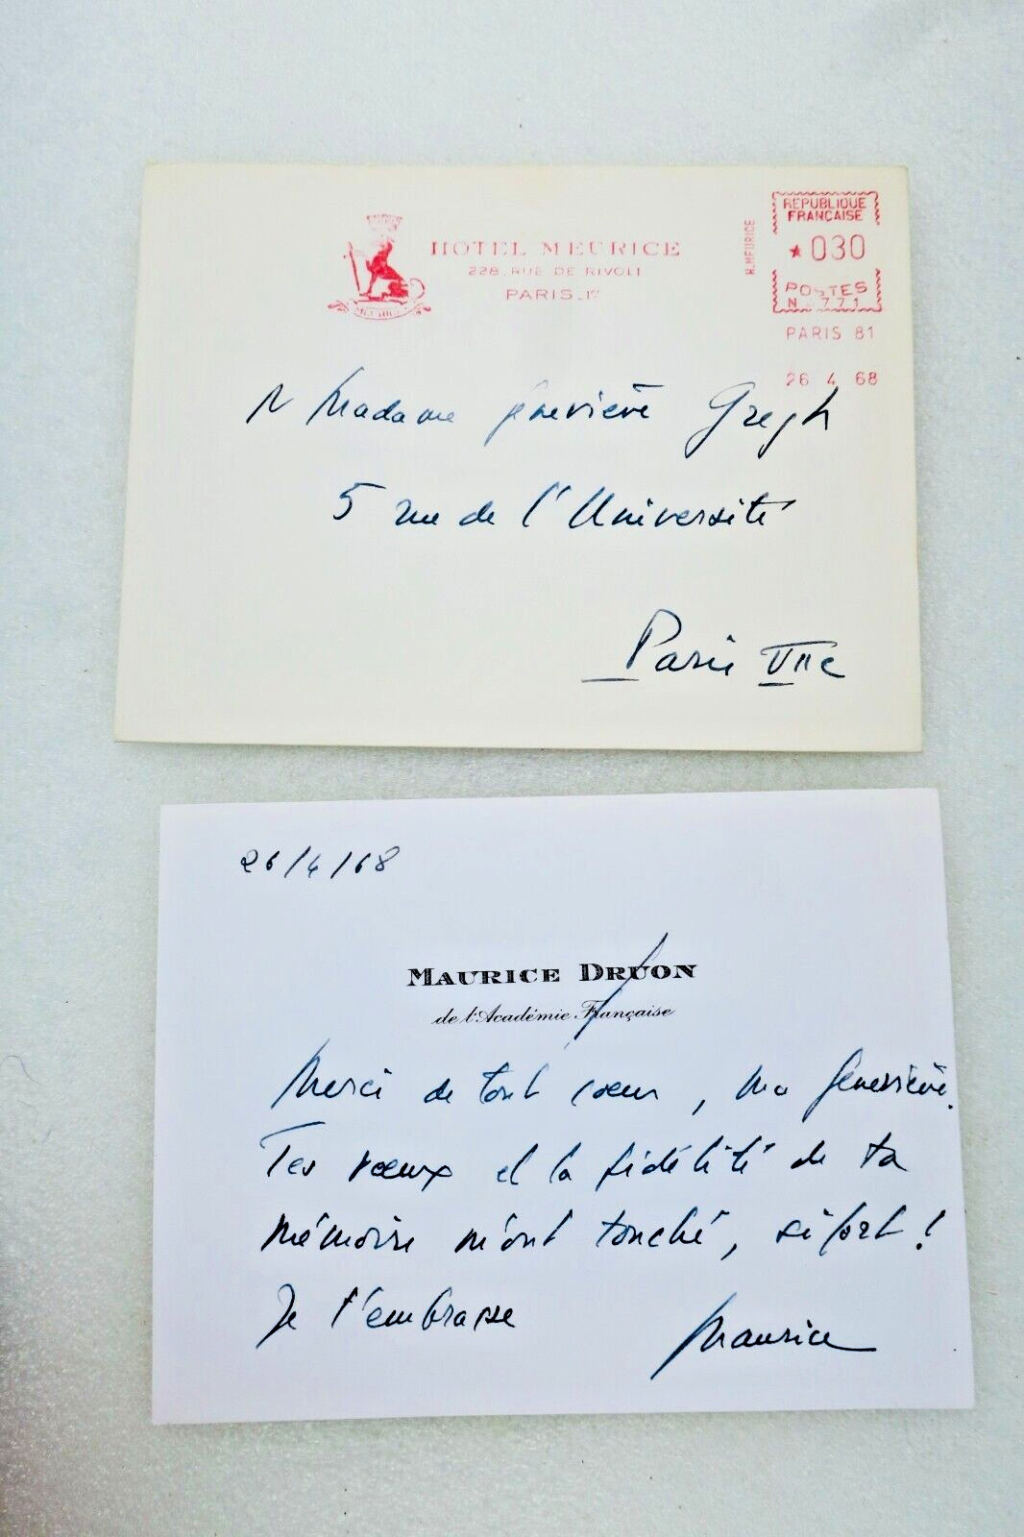 HOTEL MEURICE
228, RUE DE RIVOLI
PARIS_1er
H.MEURICE
REPUBLIQUE
FRANÇAISE
030
POSTES
PARIS 81
26 4 68
Madame Geneviève Gregh
5 rue de l'Université
Paris VIIe
26/4/68
MAURICE DRUON
de l'Académie Française
Merci de tout cœur, ma Geneviève.
Tes vœux et la fidélité de ta
mémoire m'ont touché, si fort!
Je t'embrasse
Maurice